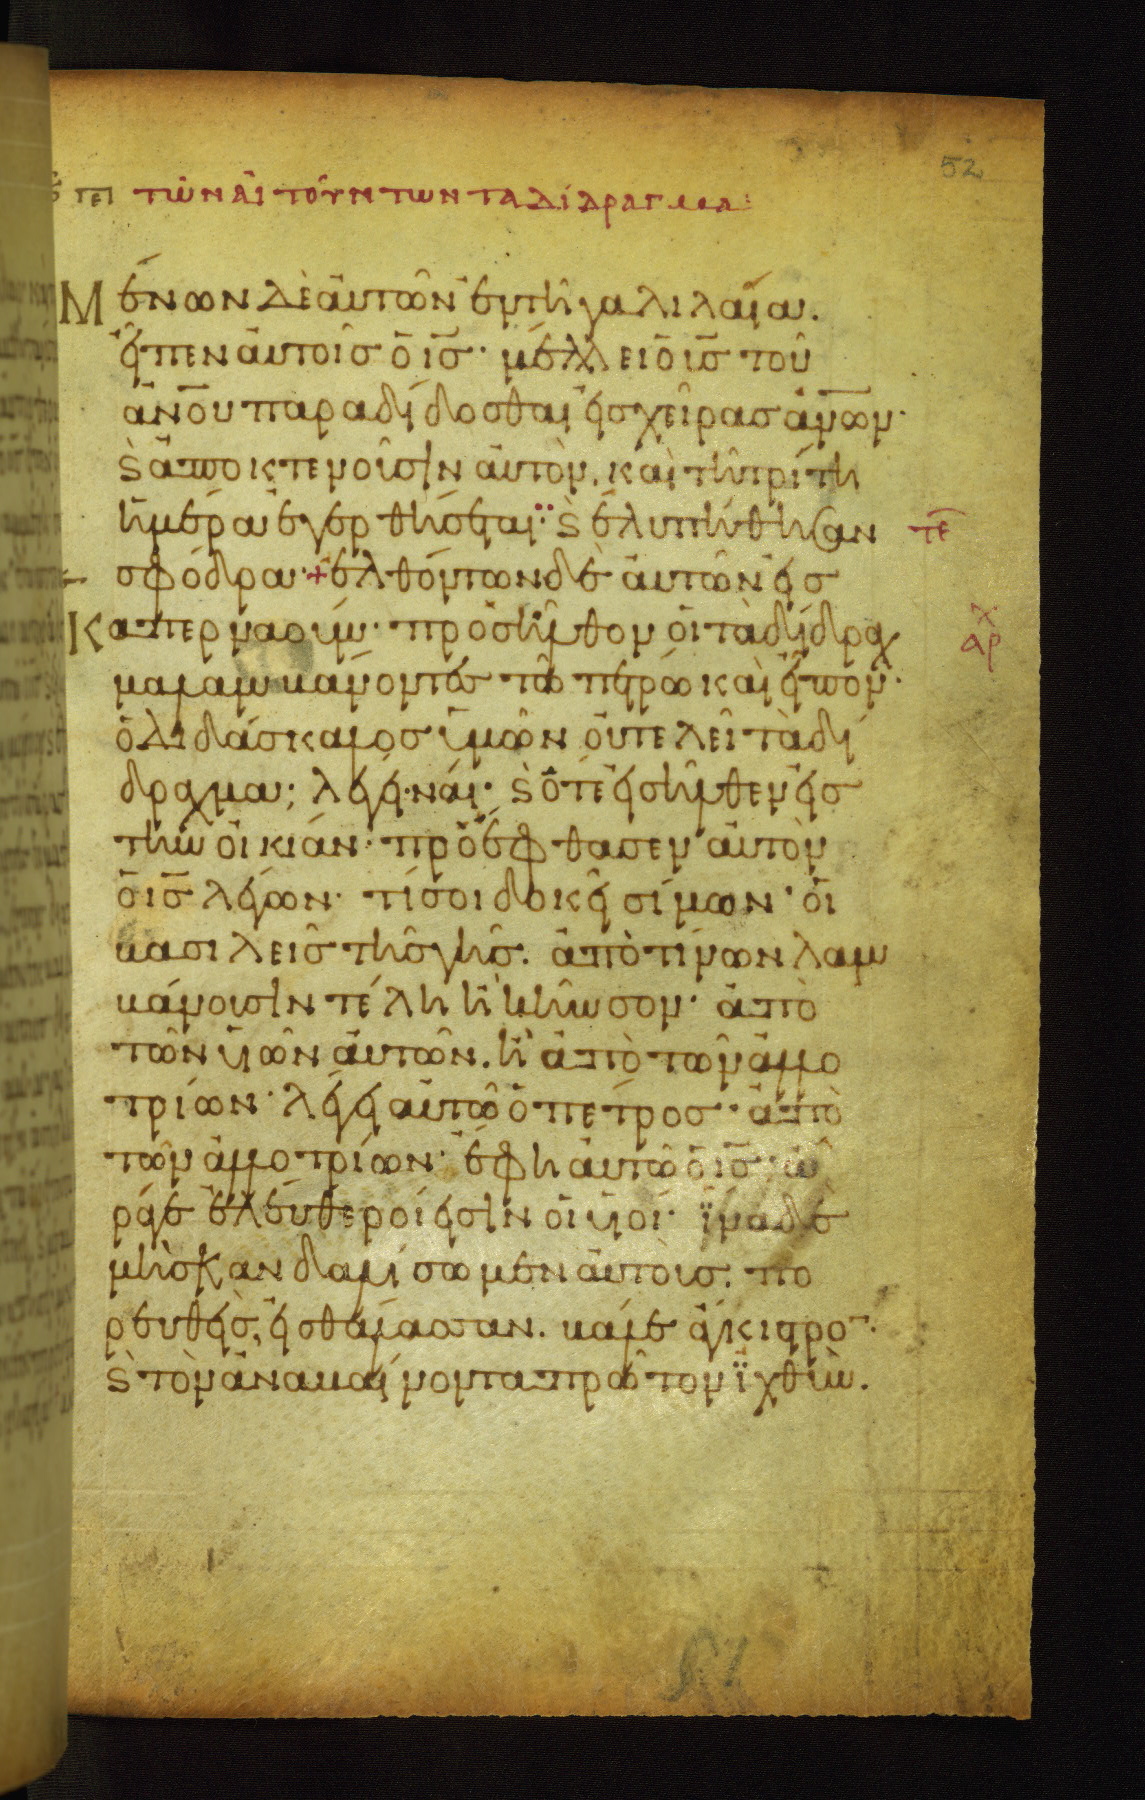 52
τῶν αἰτούντων τὰ δίδραγμα:
Μένων δὲ αὐτῶν ἐν τῇ γαλιλαία.
εἶπεν αὐτοῖς ὁ ις̅· μέλλει ὁ υς̅ τοῦ
ἀνο̅υ παραδίδοσθαι εἰς χεῖρας ἀνω̅ν·
ϗ ἀποκτενοῦσιν αὐτὸν. καὶ τῆ τρίτη
ἡμέρα ἐγερθήσεται· ϗ ἐλυπήθησαν
τε̅
σφόδρα·+ ἐλθόντων δὲ αὐτῶν εἰς
Καπερναοὺμ· προσῆλθον οἱ τὰ δίδραχ
αρχ
μα λαμβάνοντες τῶ πέτρω καὶ εἶπον·
ὁ διδάσκαλος ὑμῶν οὐ τελεῖ τὰ δί
δραχμα; λέγει· ναί· ϗ ὅτε εἰσῆλθεν εἰς
τὴν οἰκίαν· προέφθασεν αὐτὸν
ὁ ις̅ λέγων· τί σοι δοκεῖ σίμων· οἱ
βασιλεῖς τῆς γῆς. ἀπὸ τίνων λαμ
βάνουσιν τέλη ἢ κῆνσον· ἀπὸ
τῶν υἱῶν αὐτῶν. ἢ ἀπὸ τῶν ἀλλο
τρίων· λέγει αὐτῶ ὁ πέτρος· ἀπὸ
τῶν ἀλλοτρίων· ἔφη αὐτῶ ὁ ις̅· ἄ
ραγε ἐλεύθεροί εἰσιν οἱ υἱοί· ἵνα δὲ
μὴ σκανδαλίσωμεν αὐτοὺς· πο
ρευθεὶς, εἰς θάλασσαν. βάλε ἄγκιστρον·
ϗ τὸν ἀναβαίνοντα πρῶτον ἰχθὺν.